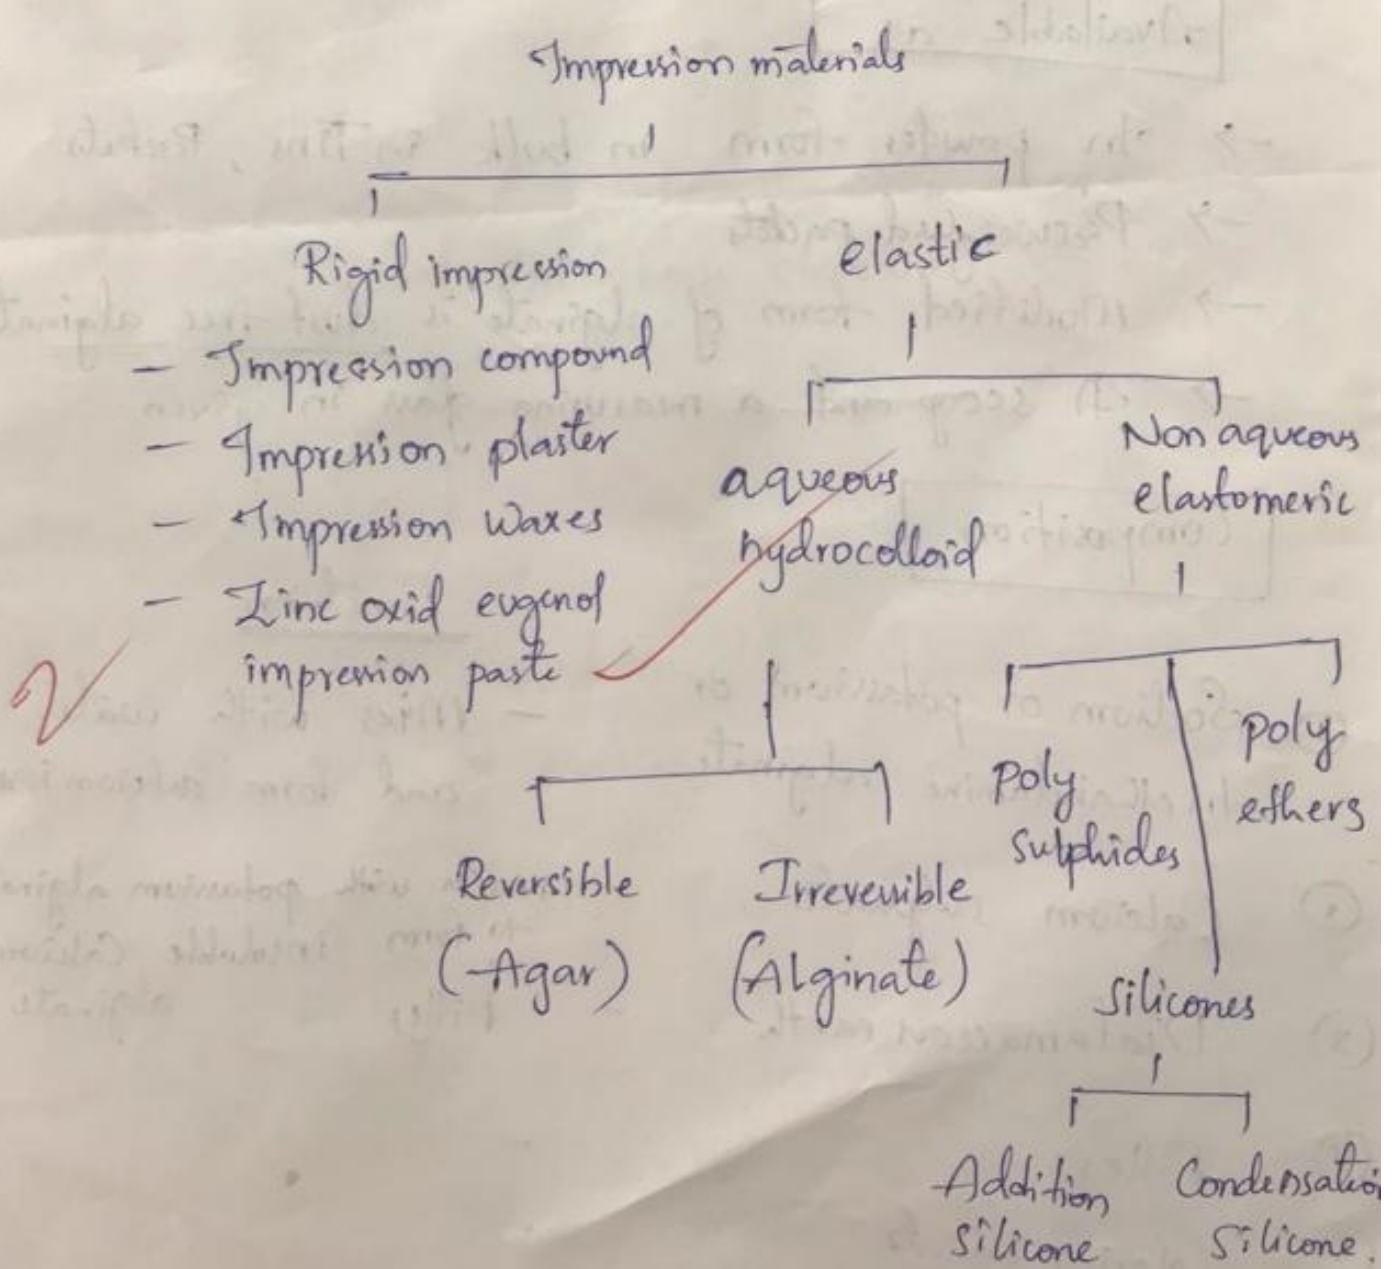 Impression materials
Rigid impression
- Impression compound
- Impression plaster
- Impression waxes
- Zinc oxid eugenol
impression paste
2
elastic
aqueous
hydrocolloid
Reversible
(Agar)
Irreversible
(Alginate)
Non aqueous
elastomeric
poly
sulphides
poly
ethers
Silicones
Addition
silicone
Condensation
Silicone.